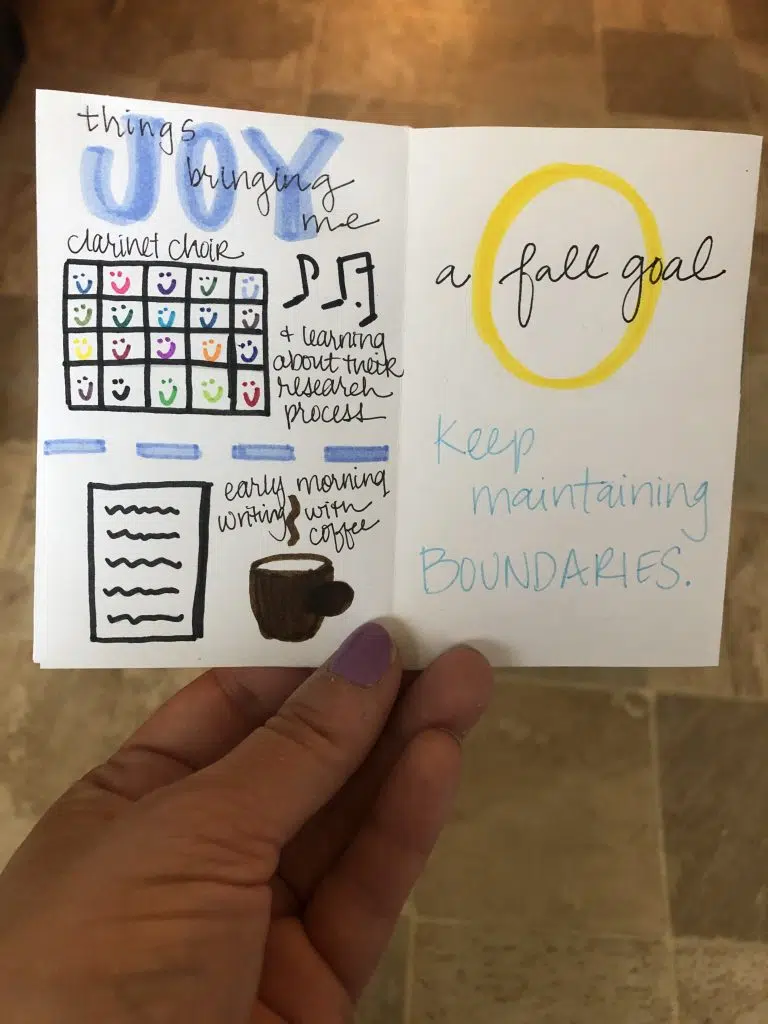 things
JOY
bringing
me
clarinet choir
+ learning
about their
research
process
early morning
writing with
coffee
a fall goal
Keep
maintaining
BOUNDARIES.